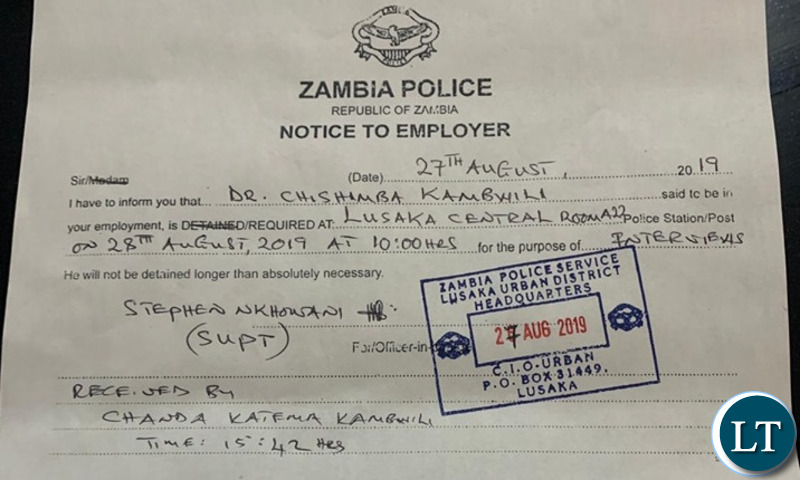 ZAMBIA POLICE
REPUBLIC OF ZAMBIA
NOTICE TO EMPLOYER
Sir/Madam (Date) 27TH AUGUST, 2019
I have to inform you that DR. CHISHIMBA KAMBWILI said to be in
your employment, is DETAINED/REQUIRED AT: LUSAKA CENTRAL ROOM 22 Police Station/Post
ON 28TH AUGUST, 2019 AT 10:00HRS for the purpose of INTERVIEWS
He will not be detained longer than absolutely necessary.
STEPHEN NKHOWANI
(SUPT)
For/Officer-in-
ZAMBIA POLICE SERVICE
LUSAKA URBAN DISTRICT
HEADQUARTERS
27 AUG 2019
C.I.O. URBAN
P.O. BOX 31449.
LUSAKA
RECEIVED BY
CHANDA KATEMA KAMBWILI
TIME: 15:42 HRS
LT